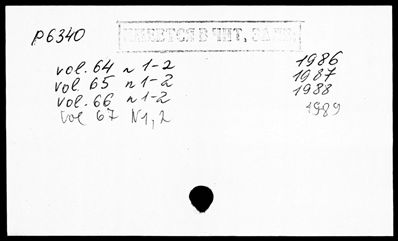 р6340
ИМЕЕТСЯ В ЧИТ. ЗАЛЕ
vol. 64 n 1-2 1986
vol. 65 n 1-2 1987
vol. 66 n 1-2 1988
vol 67 N1,2 1989